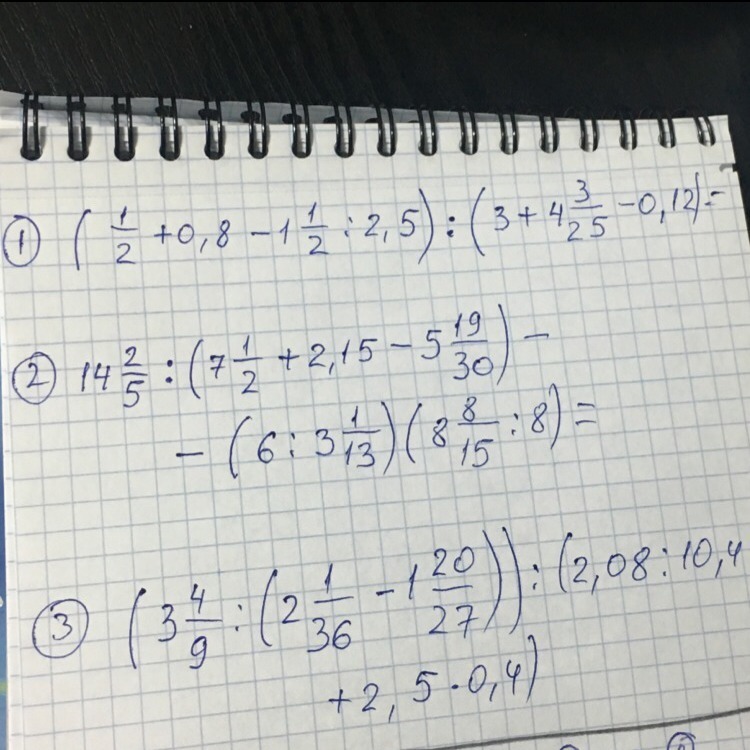 ① (1/2 + 0,8 - 1 1/2 : 2,5) : (3 + 4 3/25 - 0,12) =
② 14 2/5 : (7 1/2 + 2,15 - 5 19/30) -
- (6 : 3 1/13)(8 8/15 : 8) =
③ (3 4/9 : (2 1/36 - 1 20/27)) : (2,08 : 10,4
+ 2,5 · 0,4)